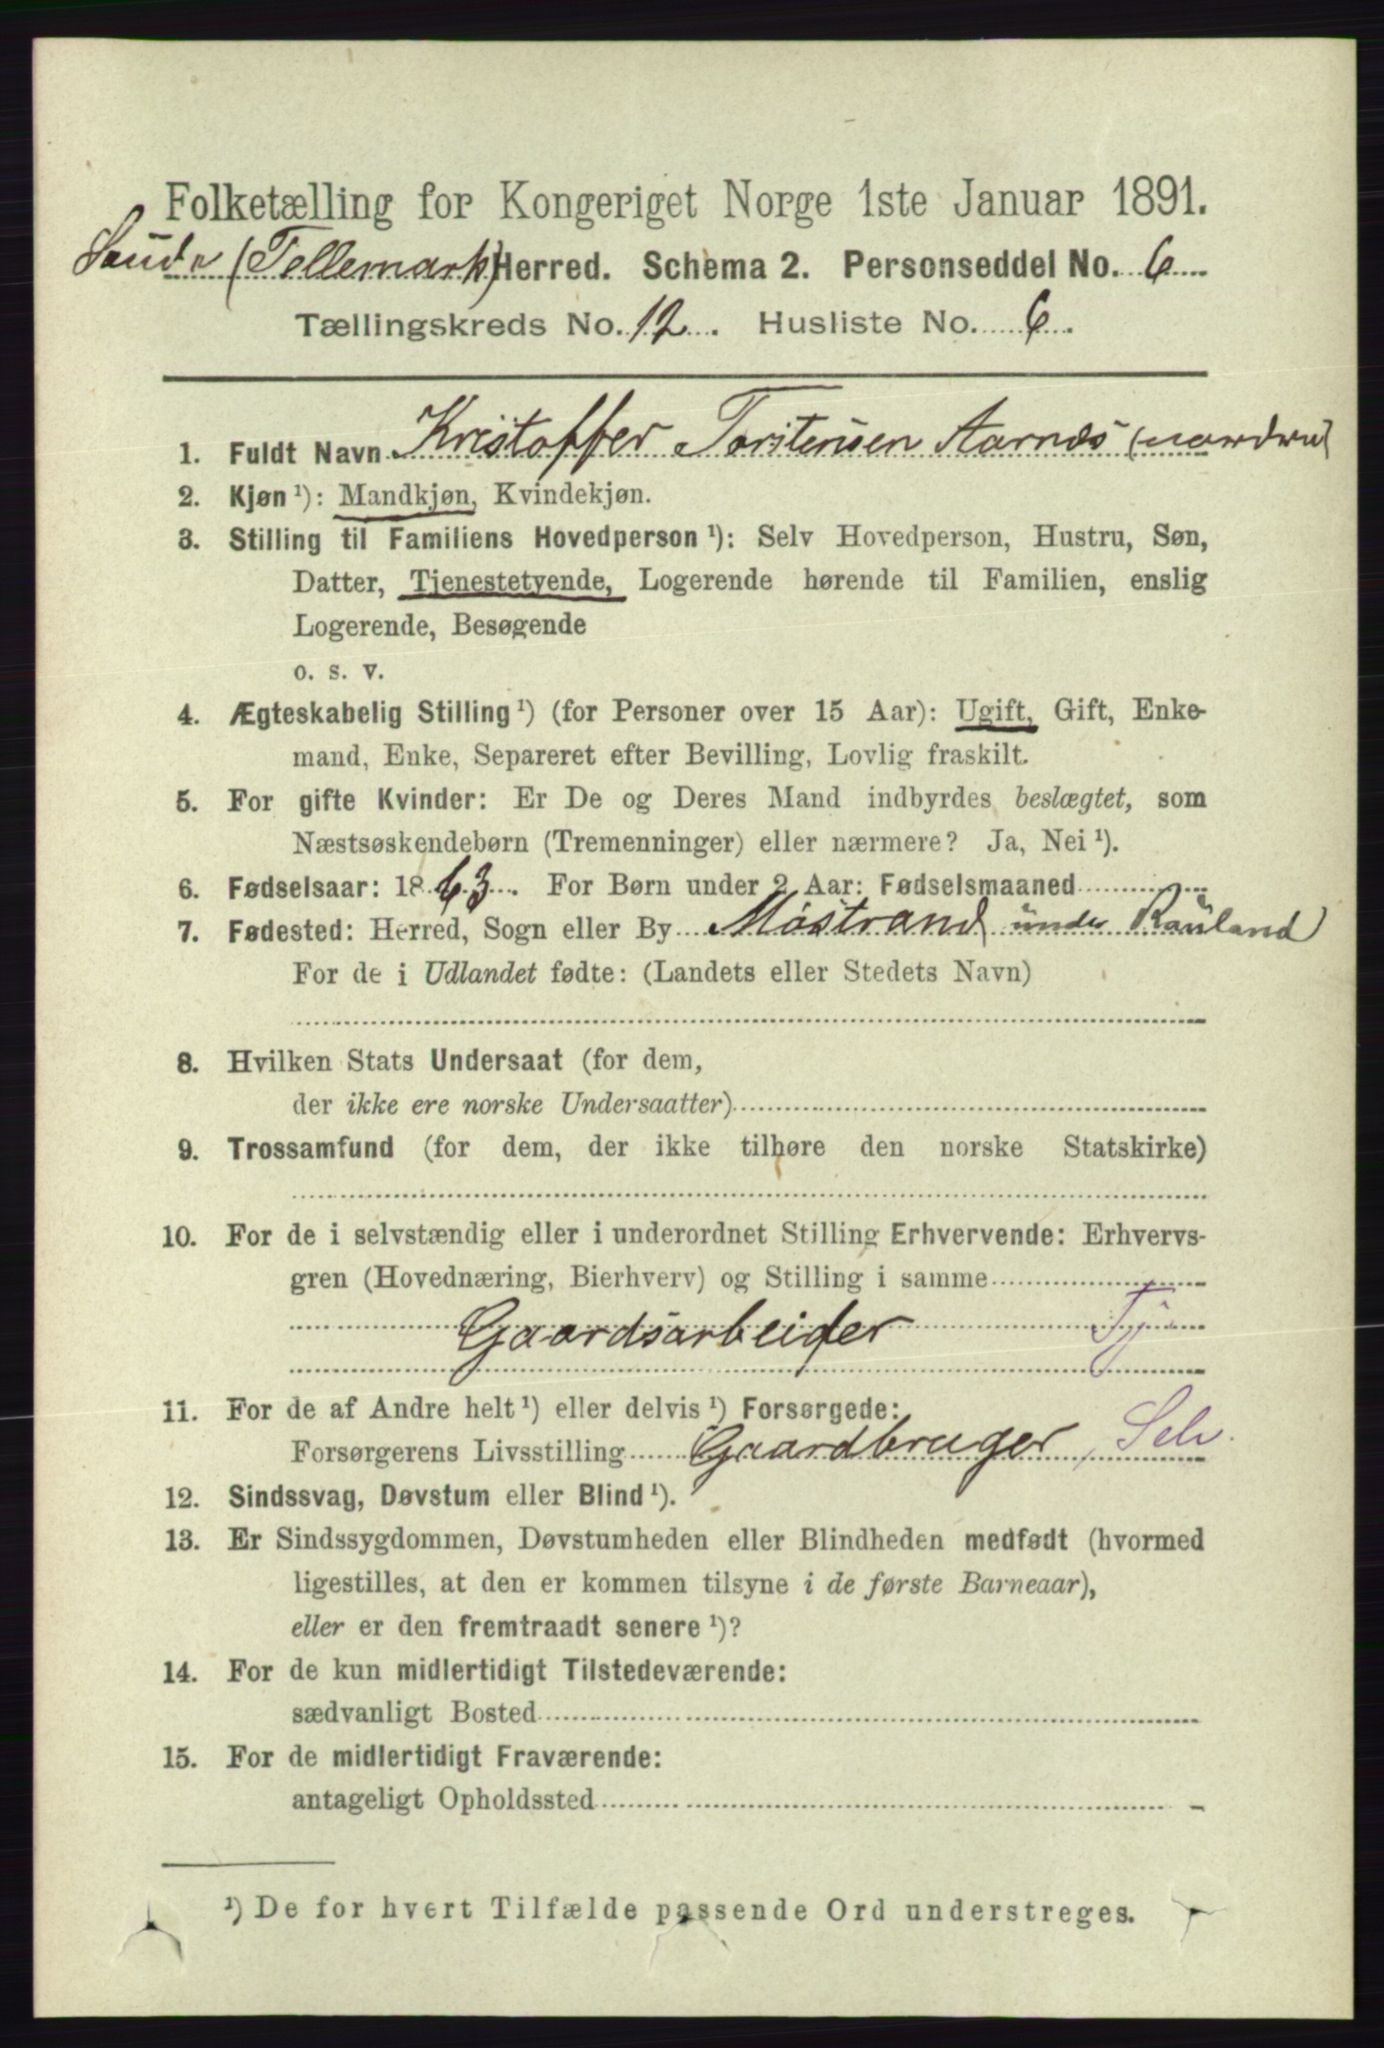 Folketælling for Kongeriget Norge 1ste Januar 1891.
Saude (Tellemark) Herred. Schema 2. Personseddel No. 6
Tællingskreds No. 12. Husliste No. 6.
1. Fuldt Navn Kristoffer Torstensen Aarnæs (nordre)
2. Kjøn ¹): Mandkjøn, Kvindekjøn.
3. Stilling til Familiens Hovedperson ¹): Selv Hovedperson, Hustru, Søn,
Datter, Tjenestetyende, Logerende hørende til Familien, enslig
Logerende, Besøgende
o. s. v.
4. Ægteskabelig Stilling ¹) (for Personer over 15 Aar): Ugift, Gift, Enke-
mand, Enke, Separeret efter Bevilling, Lovlig fraskilt.
5. For gifte Kvinder: Er De og Deres Mand indbyrdes beslægtet, som
Næstsøskendebørn (Tremenninger) eller nærmere? Ja, Nei ¹).
6. Fødselsaar: 1863. For Børn under 2 Aar: Fødselsmaaned
7. Fødested: Herred, Sogn eller By Møstrand under Rauland
For de i Udlandet fødte: (Landets eller Stedets Navn)
8. Hvilken Stats Undersaat (for dem,
der ikke ere norske Undersaatter)
9. Trossamfund (for dem, der ikke tilhøre den norske Statskirke)
10. For de i selvstændig eller i underordnet Stilling Erhvervende: Erhvervs-
gren (Hovednæring, Bierhverv) og Stilling i samme
Gaardsarbeider Tj
11. For de af Andre helt ¹) eller delvis ¹) Forsørgede:
Forsørgerens Livsstilling Gaardbruger, Selv.
12. Sindssvag, Døvstum eller Blind ¹).
13. Er Sindssygdommen, Døvstumheden eller Blindheden medfødt (hvormed
ligestilles, at den er kommen tilsyne i de første Barneaar),
eller er den fremtraadt senere ¹)?
14. For de kun midlertidigt Tilstedeværende:
sædvanligt Bosted
15. For de midlertidigt Fraværende:
antageligt Opholdssted
¹) De for hvert Tilfælde passende Ord understreges.